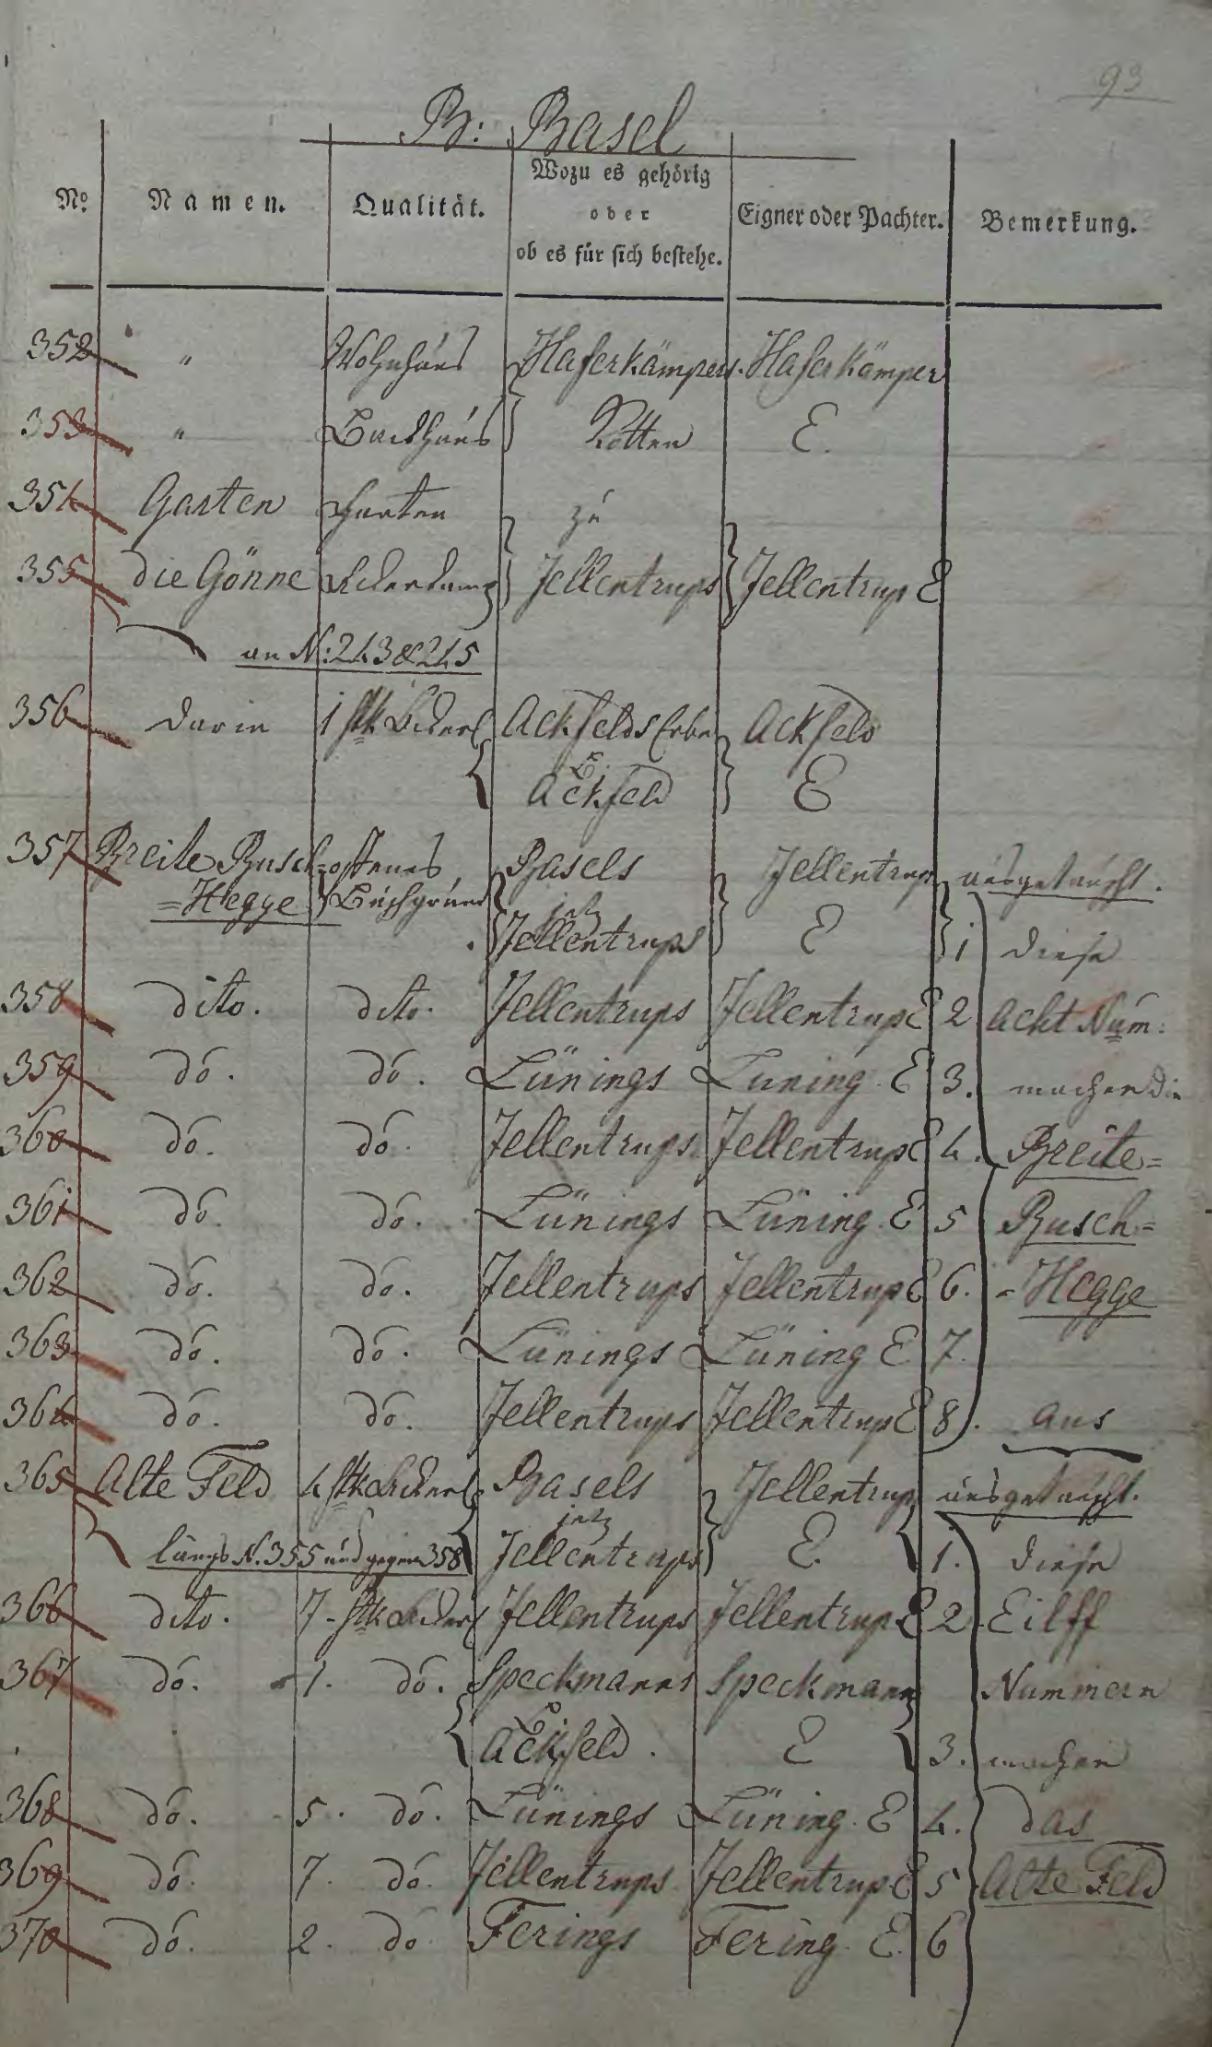 93
B: Basel
No. Namen. Qualität. Wozu es gehörig oder ob es für sich bestehe. Eigner oder Pachter. Bemerkung.
352 " Wohnhaus Haferkämpers Haferkämper
353 " Backhaus Kotten E.
354 Garten Garten zu
355 die Gönne Ackerkamp Jellentrups Jellentrup E
an N: 243 & 245
356 darin 1 stk Ackerl Ackfelds Erbe Ackfeld
B. Ackfeld E
357 Breite Busch= offenes Basels Jellentrup ausgetauscht.
=Hegge Buschgrund jetz
Jellentrups E 1 diese
358 dito. dito. Jellentrups Jellentrup E 2 acht Num:
359 do. do. Lünings Lüning E 3. machen die
360 do. do. Jellentrups Jellentrup E 4. Breite=
361 do. do. Lünings Lüning E 5 Busch=
362 do. do. Jellentrups Jellentrup E 6. =Hegge
363 do. do. Lünings Lüning E 7.
364 do. do. Jellentrups Jellentrup E 8. aus
365 Alte Feld 4 stk Ackerl Basels Jellentrup ausgetauscht.
jetz
längs N. 355 und gegen 358 Jellentrups E. 1. diese
366 dito. 7 - stk Ackerl Jellentrups Jellentrup E 2. Eilff
367 do. 1. do. Speckmanns Speckmann Nummern
B. Ackfeld. E 3. machen
368 do. 5. do. Lünings Lüning. E 4. das
369 do. 7. do. Jellentrups Jellentrup E 5 Alte Feld
370 do. 2. do Ferings Fering. E. 6